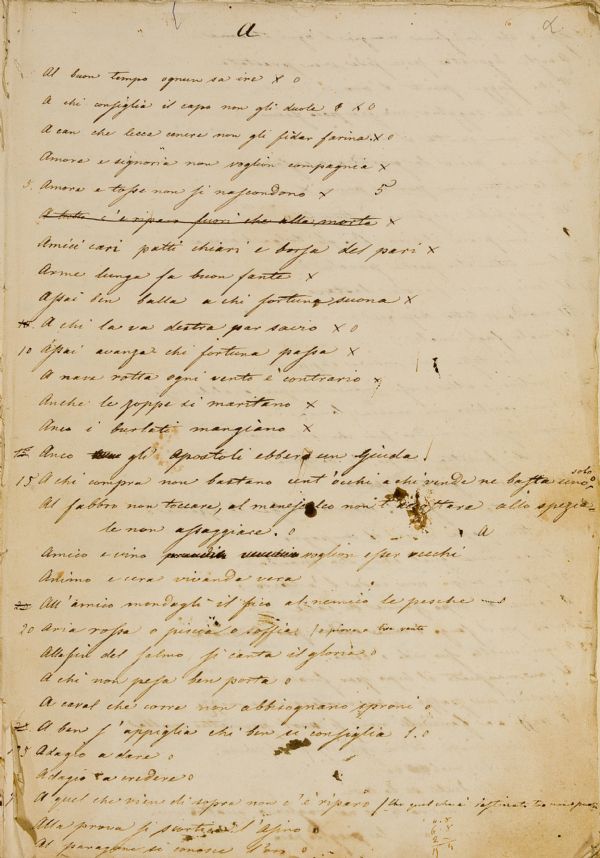 a
2
Al buon tempo ognun sa ire x o
A chi consiglia il capo non gli duole x o
A can che lecca cenere non gli fidar farina x o
Amore e signoria non voglion compagnia x
5. Amore e tosse non si nascondono x 5
A tutto c'è riparo fuori che alla morte x
Amici cari patti chiari e borsa del pari x
Arme lunga fa buon fante x
Assai ben balla a chi fortuna suona x
10. A chi la va destra par savio x o
10 Assai avanza chi fortuna passa x
A nave rotta ogni vento è contrario x
Anche le zoppe si maritano x
Anco i burlati mangiano x
Anco gli Apostoli ebbero un Giuda.
15 A chi compra non bastano cent'occhi a chi vende ne basta uno solo
Al fabbro non toccare, al manescalco non t'accostare allo spezia-
le non assaggiare. o
a
Amico e vino voglion esser vecchi
Animo e cera vivanda vera
All'amico mondagli il fico al nemico le pesche
20 Aria rossa o piscia o soffia
Alla fin del salmo si canta il gloria o
A chi non pesa ben porta o
A caval che corre non abbisognano sproni o
A ben s'appiglia chi ben si consiglia 1. o
Adagio a dare o
Adagio a credere o
A quel che vien di sopra non c'è riparo
Alla prova si scortica l'Asino o
Al paragone si conosce l'oro o